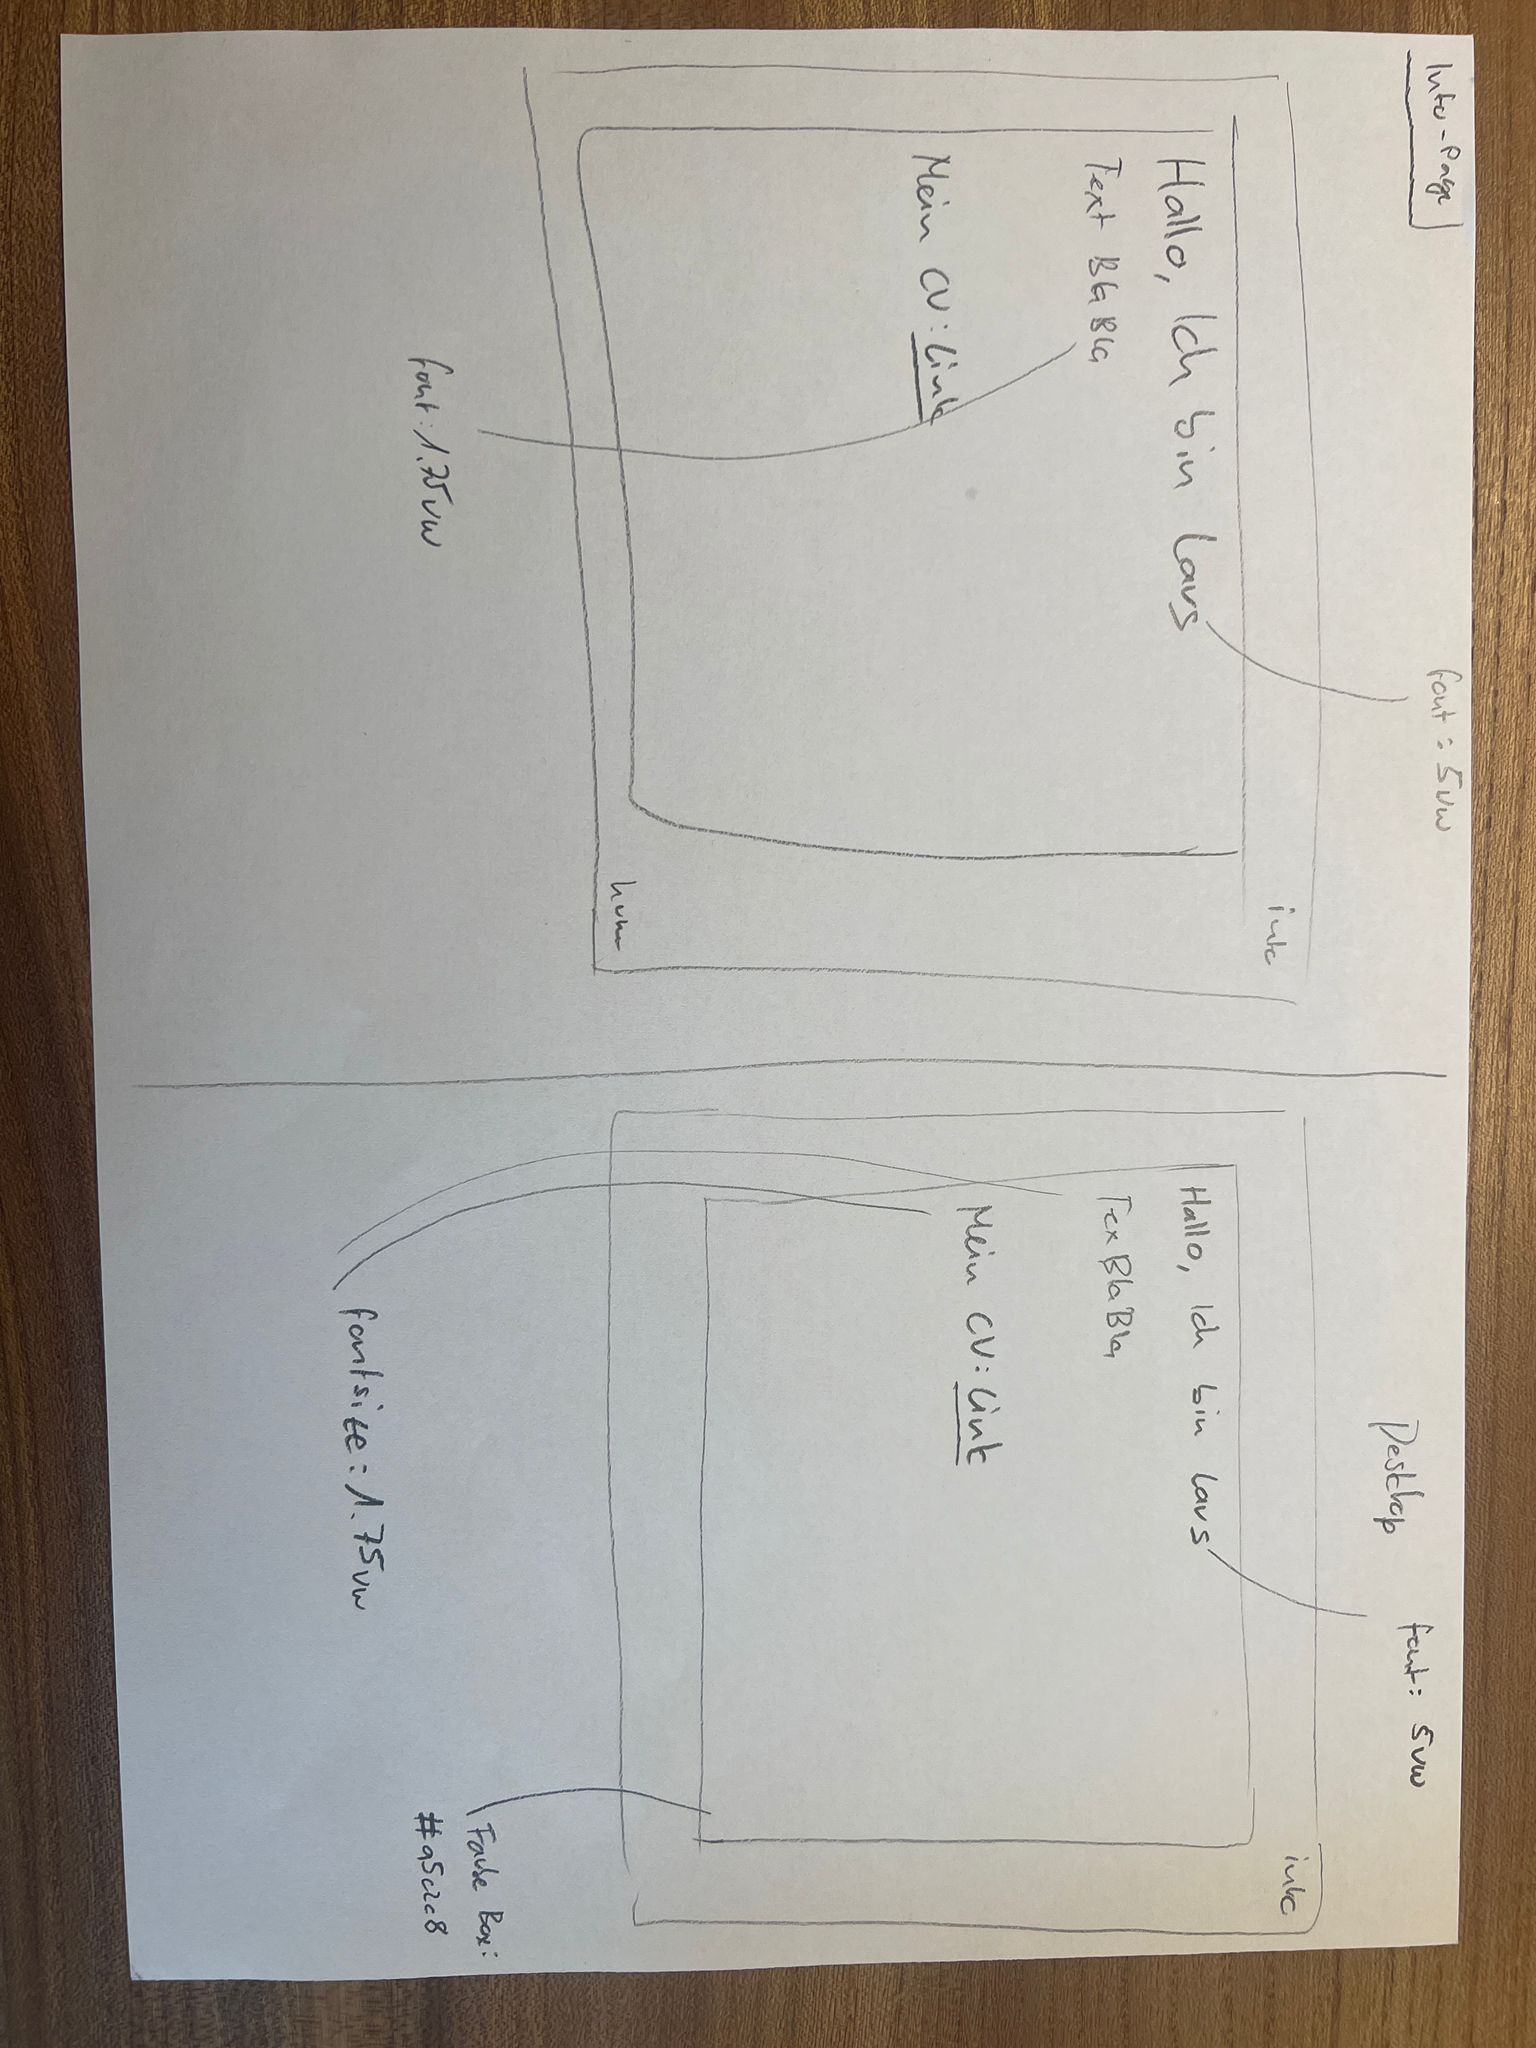 Info-Page
font: 5vw
info
Hallo, Ich bin Lars
Text BlaBla
Mein CV: Link
font: 1.75vw
Desktop
font: 5vw
info
Hallo, Ich bin Lars
Tex BlaBla
Mein CV: Link
Farbe Box:
#a5c2c8
fontsize: 1.75vw